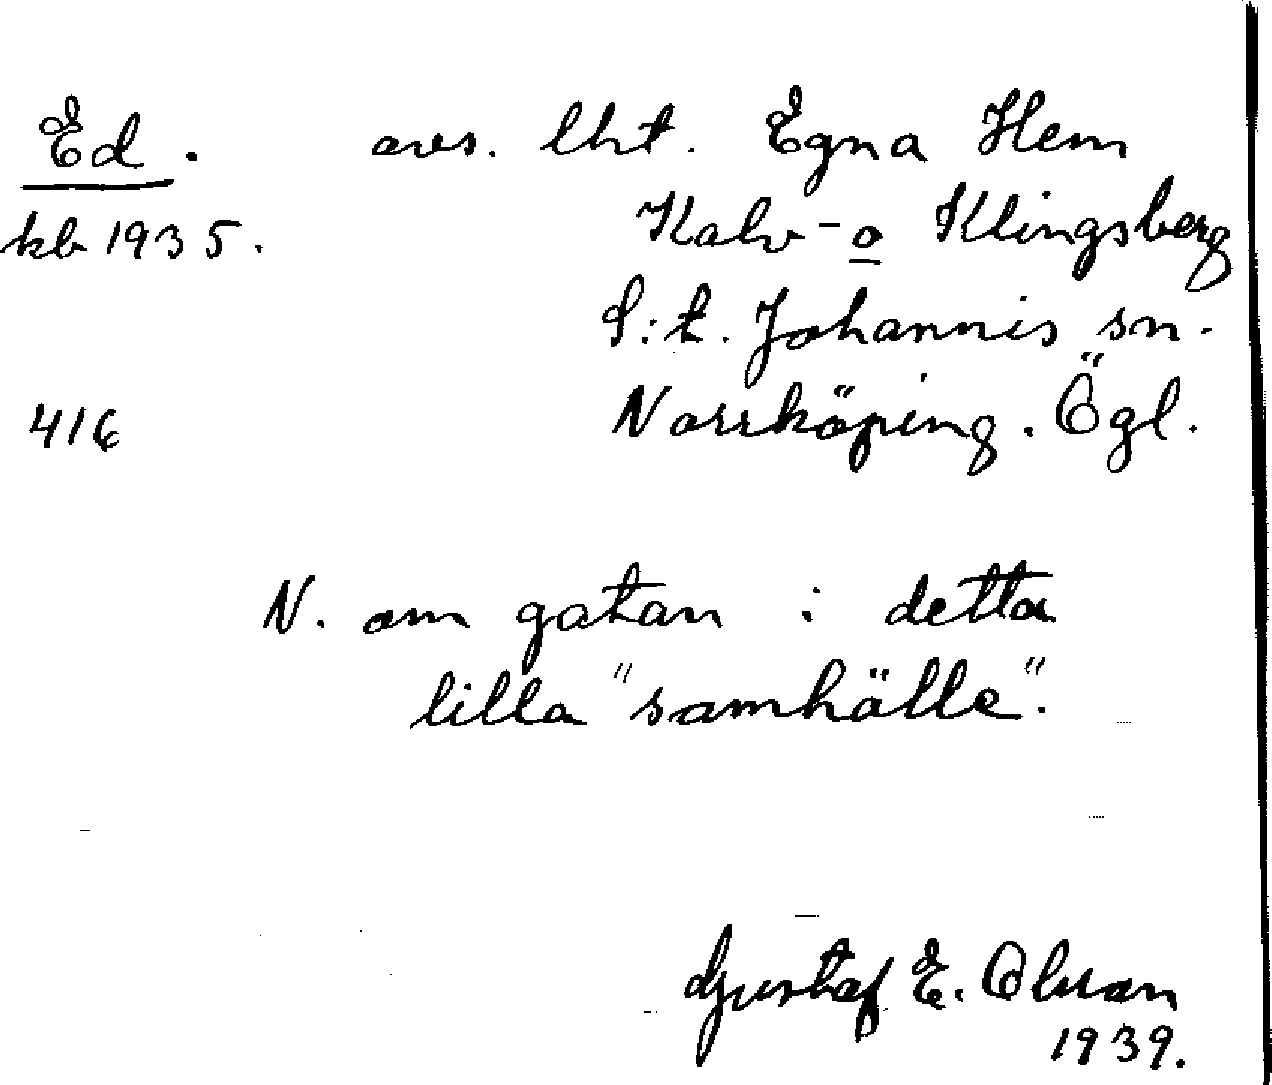 Ed. avs. lht. Egna Hem
kb 1935. Kalv- o Klingsberg
S:t. Johannis sn.
416 Norrköping. Ögl.
N. om gatan i detta
lilla "samhälle".
Gustaf E. Olsson
1939.